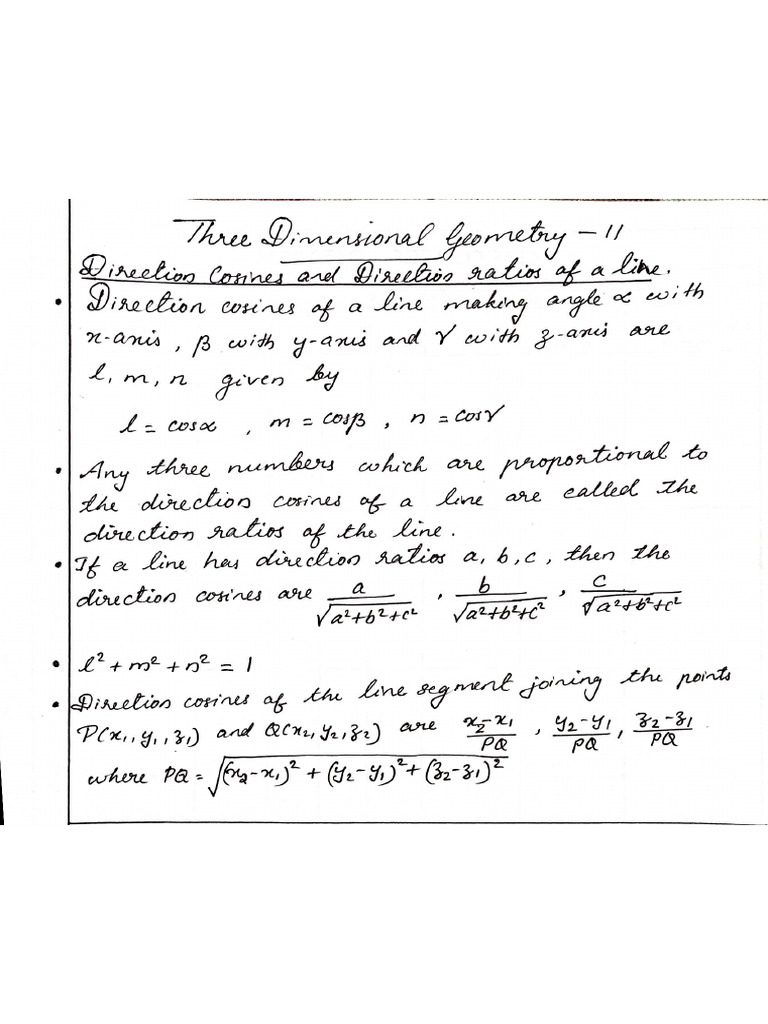 Three Dimensional Geometry - 11
Direction Cosines and Direction ratios of a line.
• Direction cosines of a line making angle α with
x-axis, β with y-axis and γ with z-axis are
l, m, n given by
l = cosα , m = cosβ , n = cosγ
• Any three numbers which are proportional to
the direction cosines of a line are called the
direction ratios of the line.
• If a line has direction ratios a, b, c, then the
direction cosines are a/√(a²+b²+c²) , b/√(a²+b²+c²) , c/√(a²+b²+c²)
• l² + m² + n² = 1
• Direction cosines of the line segment joining the points
P(x₁, y₁, z₁) and Q(x₂, y₂, z₂) are (x₂-x₁)/PQ , (y₂-y₁)/PQ , (z₂-z₁)/PQ
where PQ = √((x₂-x₁)² + (y₂-y₁)² + (z₂-z₁)²)